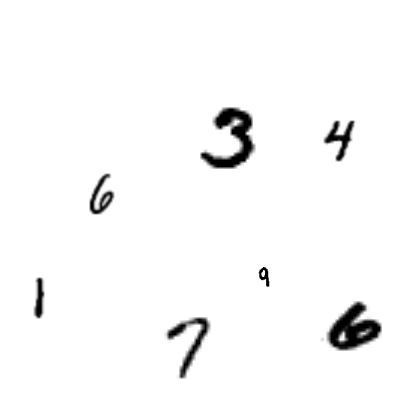 3 4
6
1 9
7 6